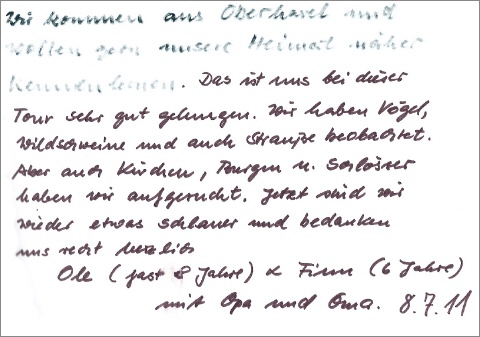 Wir kommen aus Oberhavel und
wollen gern unsere Heimat näher
kennenlernen. Das ist uns bei dieser
Tour sehr gut gelungen. Wir haben Vögel,
Wildschweine und auch Strauße beobachtet.
Aber auch Kirchen, Burgen u. Schlösser
haben wir aufgesucht. Jetzt sind wir
wieder etwas schlauer und bedanken
uns recht herzlich
Ole (fast 8 Jahre) & Finn (6 Jahre)
mit Opa und Oma. 8.7.11